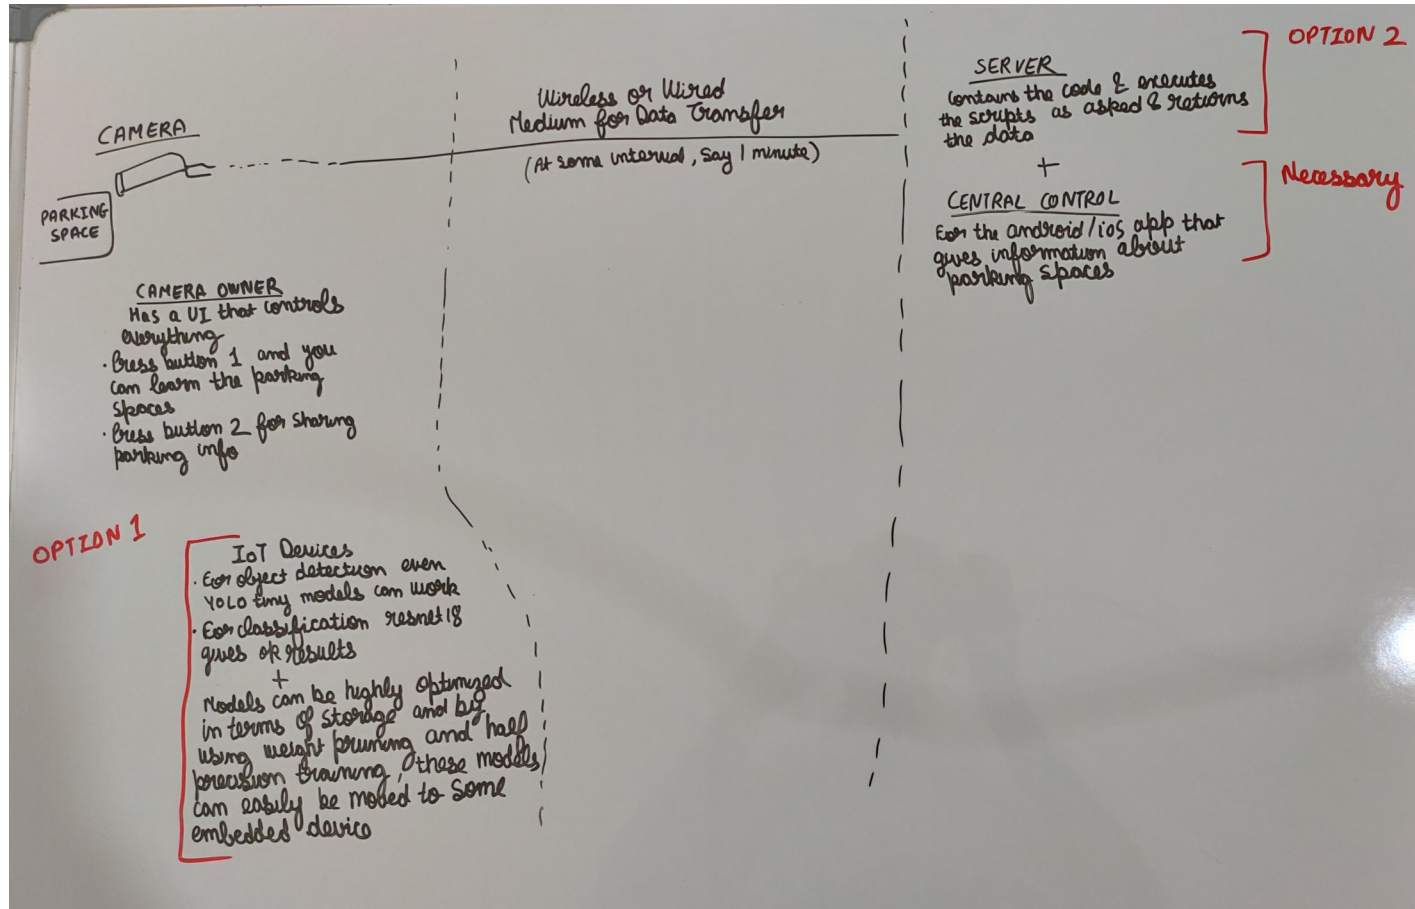 CAMERA
PARKING
SPACE
CAMERA OWNER
Has a UI that controls
everything
· Press button 1 and you
can learn the parking
spaces
· Press button 2 for sharing
parking info
OPTION 1
IoT Devices
· For object detection even
YOLO tiny models can work
· For classification resnet18
gives ok results
+
Models can be highly optimized
in terms of storage and by
using weight pruning and half
precision training, these models
can easily be moved to some
embedded device
Wireless or Wired
Medium for Data Transfer
(At some interval, say 1 minute)
SERVER
Contains the code & executes
the scripts as asked & returns
the data
OPTION 2
+
CENTRAL CONTROL
For the android/ios app that
gives information about
parking spaces
Necessary